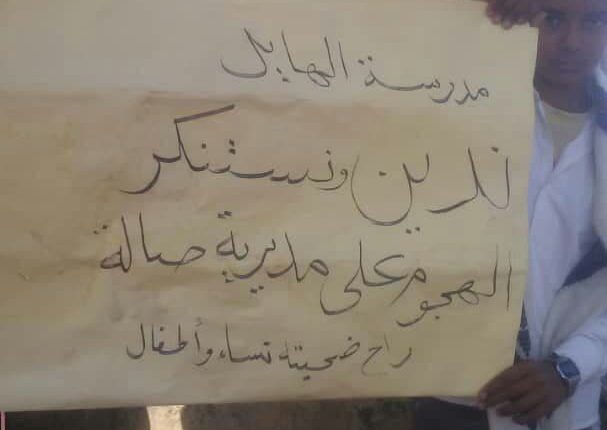 مدرسة الهايل
ندين ونستنكر
الهجوم على مديرية صالة
راح ضحيته نساء وأطفال